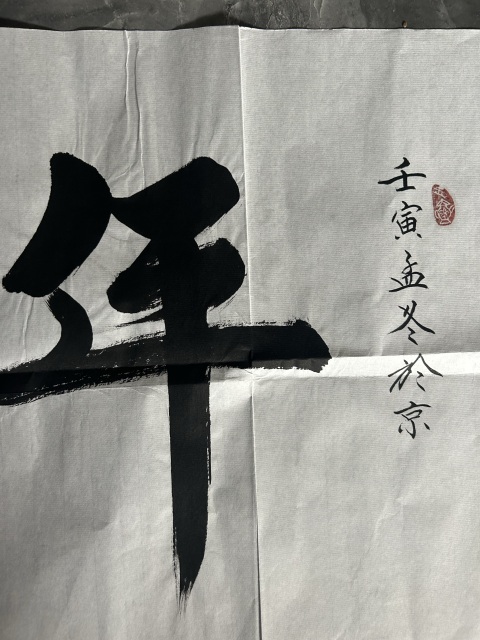 壬寅孟冬於京
年